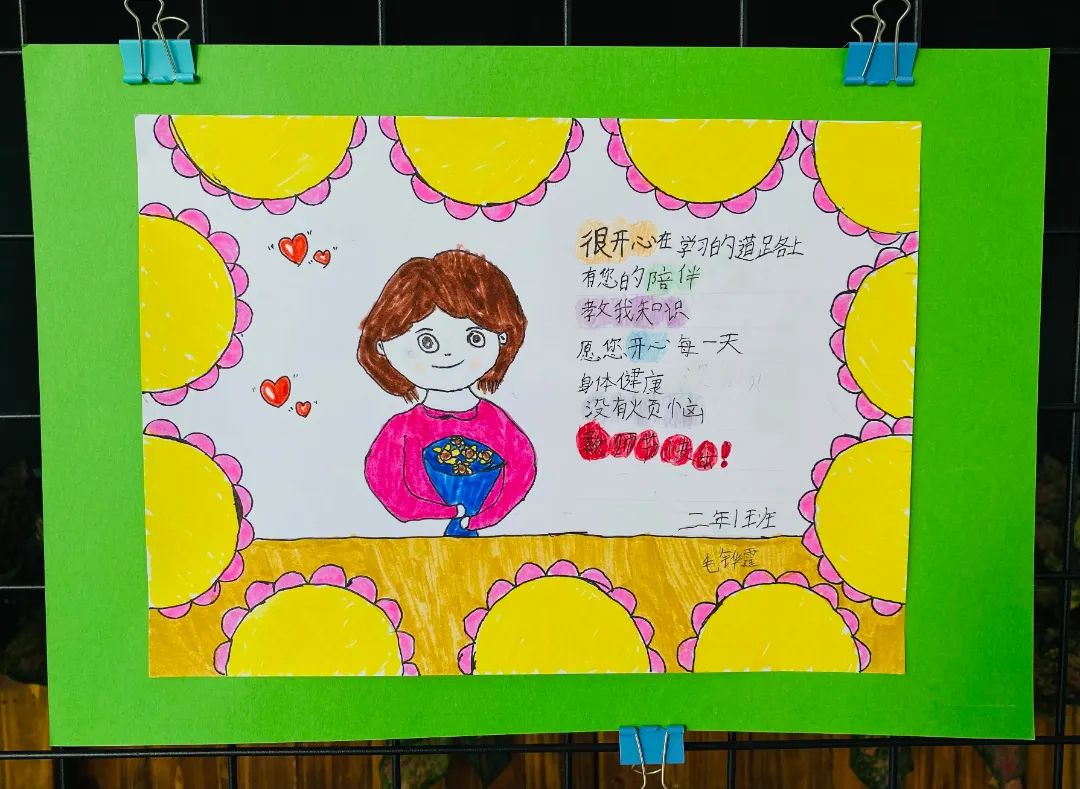 很开心在学习的道路上
有您的陪伴
教我知识
愿您开心每一天
身体健康
没有烦恼
教师节快乐!
二年1班
毛铧霆